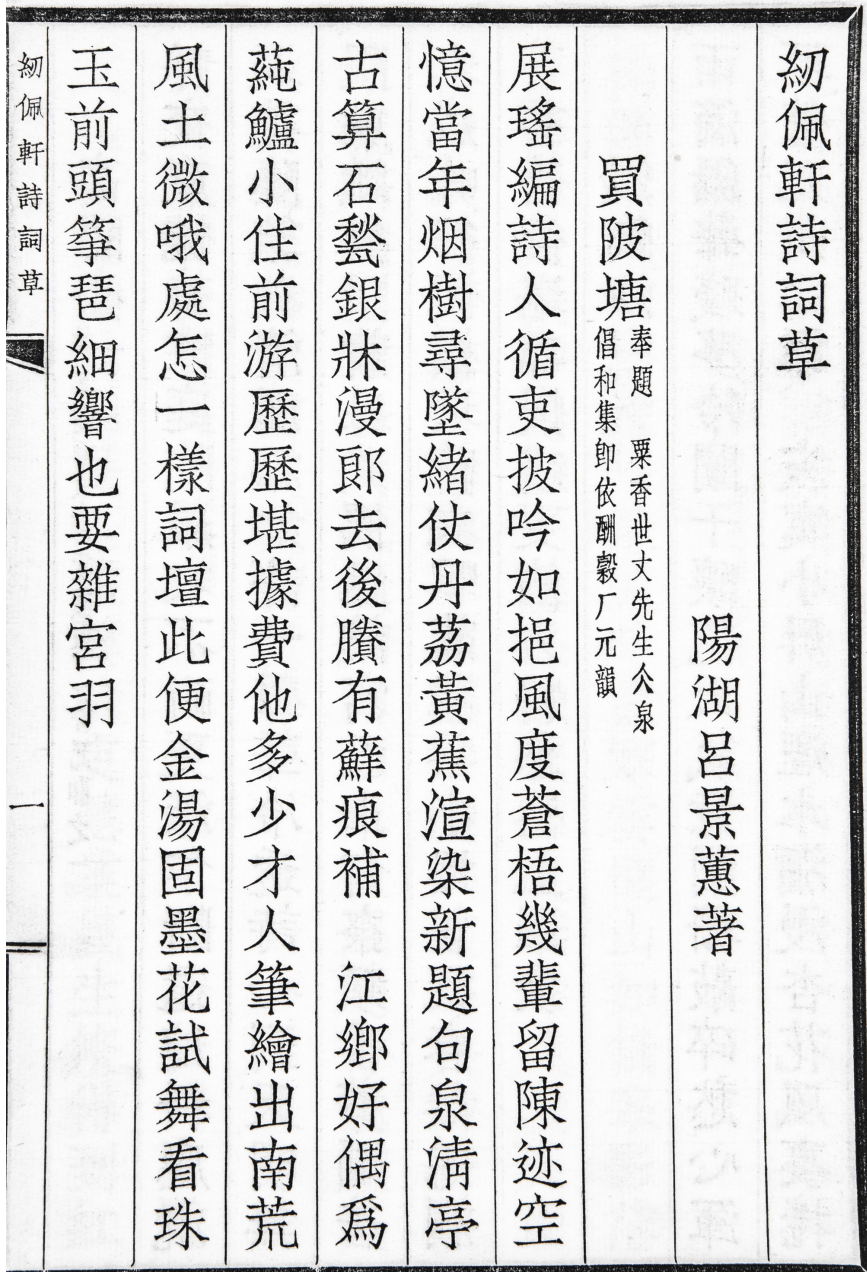 紉佩軒詩詞草
陽湖呂景蕙著
買陂塘
奉題　粟香世丈先生仌泉
倡和集卽依酬穀厂元韻
展瑤編詩人循吏披吟如挹風度蒼梧幾輩留陳迹空
憶當年烟樹尋墜緒仗丹荔黃蕉渲染新題句泉淸亭
古算石甃銀牀漫郞去後賸有蘚痕補　江鄕好偶爲
蒓鱸小住前游歷歷堪據費他多少才人筆繪出南荒
風土微哦處怎一樣詞壇此便金湯固墨花試舞看珠
玉前頭箏琶細響也要雜宮羽
紉佩軒詩詞草
一